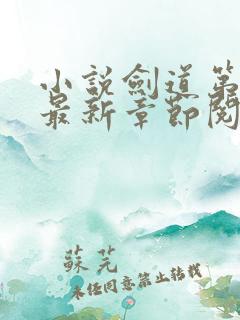 小說劍道第
最新章節閱
蘇芫
未經同意禁止轉載